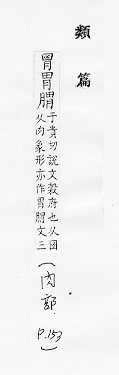 類篇
胃胃䐔
于貴切說文穀府也从𡇒
从肉象形亦作胃䐔文三
(肉部
P.153)